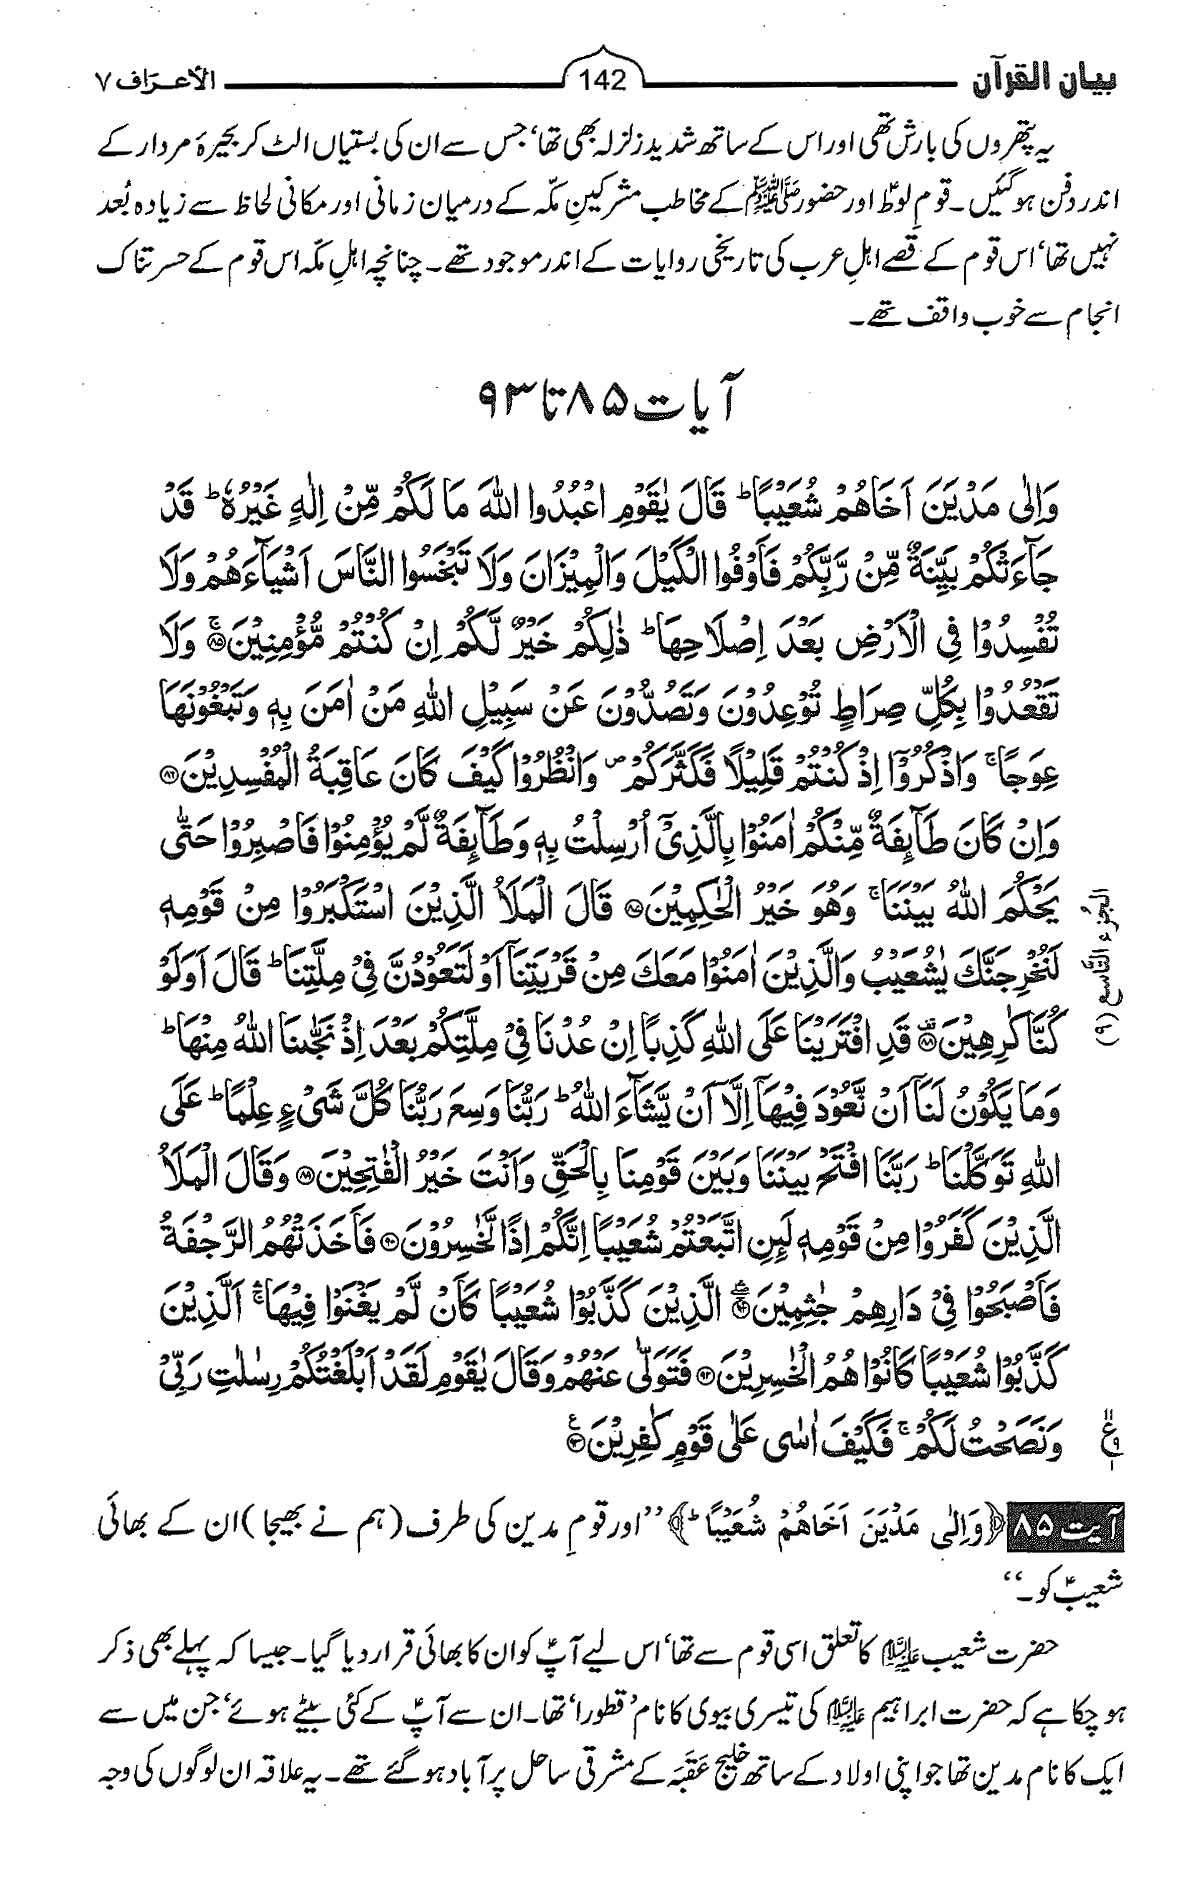 بیان القرآن 142 الاعراف ۷
یہ پتھروں کی بارش تھی اور اس کے ساتھ شدید زلزلہ بھی تھا‘ جس سے ان کی بستیاں الٹ کر بحیرۂ مردار کے
اندر دفن ہو گئیں۔ قومِ لوطؑ اور حضور ﷺ کے مخاطب مشرکینِ مکّہ کے درمیان زمانی اور مکانی لحاظ سے زیادہ بُعد
نہیں تھا‘ اس قوم کے قصے اہلِ عرب کی تاریخی روایات کے اندر موجود تھے۔ چنانچہ اہلِ مکّہ اس قوم کے حسرتناک
انجام سے خوب واقف تھے۔
آیات ۸۵ تا ۹۳
وَاِلٰی مَدْیَنَ اَخَاهُمْ شُعَیْبًا ؕ قَالَ یٰقَوْمِ اعْبُدُوا اللّٰهَ مَا لَكُمْ مِّنْ اِلٰهٍ غَیْرُهٗ ؕ قَدْ
جَآءَتْكُمْ بَیِّنَةٌ مِّنْ رَّبِّكُمْ فَاَوْفُوا الْكَیْلَ وَالْمِیْزَانَ وَلَا تَبْخَسُوا النَّاسَ اَشْیَآءَهُمْ وَلَا
تُفْسِدُوْا فِی الْاَرْضِ بَعْدَ اِصْلَاحِهَا ؕ ذٰلِكُمْ خَیْرٌ لَّكُمْ اِنْ كُنْتُمْ مُّؤْمِنِیْنَ ۚ﴿۸۵﴾ وَلَا
تَقْعُدُوْا بِكُلِّ صِرَاطٍ تُوْعِدُوْنَ وَتَصُدُّوْنَ عَنْ سَبِیْلِ اللّٰهِ مَنْ اٰمَنَ بِهٖ وَتَبْغُوْنَهَا
عِوَجًا ۚ وَاذْكُرُوْۤا اِذْ كُنْتُمْ قَلِیْلًا فَكَثَّرَكُمْ ۪ وَانْظُرُوْا كَیْفَ كَانَ عَاقِبَةُ الْمُفْسِدِیْنَ ﴿۸۶﴾
وَاِنْ كَانَ طَآئِفَةٌ مِّنْكُمْ اٰمَنُوْا بِالَّذِیْۤ اُرْسِلْتُ بِهٖ وَطَآئِفَةٌ لَّمْ یُؤْمِنُوْا فَاصْبِرُوْا حَتّٰی
یَحْكُمَ اللّٰهُ بَیْنَنَا ۚ وَهُوَ خَیْرُ الْحٰكِمِیْنَ ﴿۸۷﴾ قَالَ الْمَلَاُ الَّذِیْنَ اسْتَكْبَرُوْا مِنْ قَوْمِهٖ
لَنُخْرِجَنَّكَ یٰشُعَیْبُ وَالَّذِیْنَ اٰمَنُوْا مَعَكَ مِنْ قَرْیَتِنَاۤ اَوْ لَتَعُوْدُنَّ فِیْ مِلَّتِنَا ؕ قَالَ اَوَلَوْ
كُنَّا كٰرِهِیْنَ ﴿۸۸﴾ قَدِ افْتَرَیْنَا عَلَی اللّٰهِ كَذِبًا اِنْ عُدْنَا فِیْ مِلَّتِكُمْ بَعْدَ اِذْ نَجّٰىنَا اللّٰهُ مِنْهَا ؕ
وَمَا یَكُوْنُ لَنَاۤ اَنْ نَّعُوْدَ فِیْهَاۤ اِلَّاۤ اَنْ یَّشَآءَ اللّٰهُ ؕ رَبُّنَا وَسِعَ رَبُّنَا كُلَّ شَیْءٍ عِلْمًا ؕ عَلَی
اللّٰهِ تَوَكَّلْنَا ؕ رَبَّنَا افْتَحْ بَیْنَنَا وَبَیْنَ قَوْمِنَا بِالْحَقِّ وَاَنْتَ خَیْرُ الْفٰتِحِیْنَ ﴿۸۹﴾ وَقَالَ الْمَلَاُ
الَّذِیْنَ كَفَرُوْا مِنْ قَوْمِهٖ لَئِنِ اتَّبَعْتُمْ شُعَیْبًا اِنَّكُمْ اِذًا لَّخٰسِرُوْنَ ﴿۹۰﴾ فَاَخَذَتْهُمُ الرَّجْفَةُ
فَاَصْبَحُوْا فِیْ دَارِهِمْ جٰثِمِیْنَ ﴿۹۱﴾ الَّذِیْنَ كَذَّبُوْا شُعَیْبًا كَاَنْ لَّمْ یَغْنَوْا فِیْهَا ۛۚ اَلَّذِیْنَ
كَذَّبُوْا شُعَیْبًا كَانُوْا هُمُ الْخٰسِرِیْنَ ﴿۹۲﴾ فَتَوَلّٰی عَنْهُمْ وَقَالَ یٰقَوْمِ لَقَدْ اَبْلَغْتُكُمْ رِسٰلٰتِ رَبِّیْ
وَنَصَحْتُ لَكُمْ ۚ فَكَیْفَ اٰسٰی عَلٰی قَوْمٍ كٰفِرِیْنَ ﴿۹۳﴾
الجُزء التَّاسِع (۹)
۱۱ ع ۹ ۱
آیت ۸۵ ﴿وَاِلٰی مَدْیَنَ اَخَاهُمْ شُعَیْبًا ؕ﴾ ’’اور قومِ مدین کی طرف (ہم نے بھیجا) ان کے بھائی
شعیبؑ کو۔‘‘
حضرت شعیب علیہ السلام کا تعلق اسی قوم سے تھا‘ اس لیے آپؑ کو ان کا بھائی قرار دیا گیا۔ جیسا کہ پہلے بھی ذکر
ہو چکا ہے کہ حضرت ابراہیم علیہ السلام کی تیسری بیوی کا نام ’قطورا‘ تھا۔ ان سے آپؑ کے کئی بیٹے ہوئے‘ جن میں سے
ایک کا نام مدین تھا جو اپنی اولاد کے ساتھ خلیج عَقَبَہ کے مشرقی ساحل پر آباد ہو گئے تھے۔ یہ علاقہ ان لوگوں کی وجہ